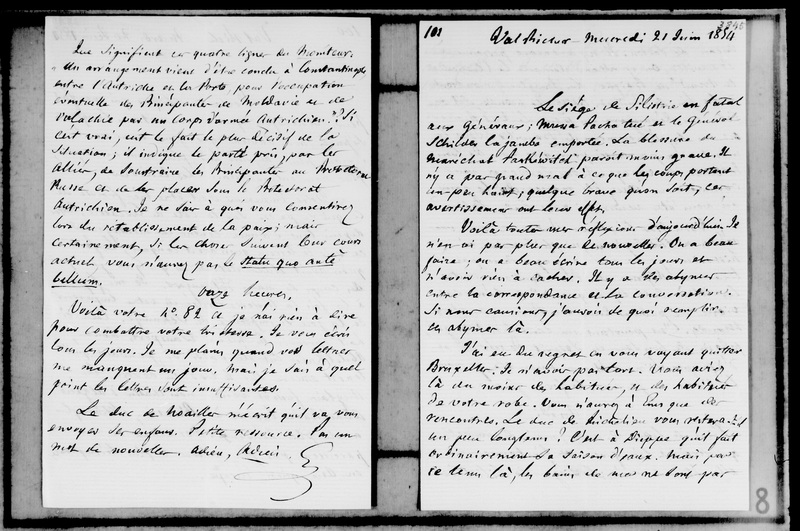 Que signifient ces quatre lignes du Moniteur.
"Un arrangement vient d'être conclu à Constantinople
entre l'Autriche et la Porte pour l'occupation
éventuelle des Principautés de Moldavie et de
Valachie par un Corps d'armée Autrichien"? Si
c'est vrai, c'est le fait le plus décisif de la
situation; il indique le parti pris, par les
Alliés, de soustraire les Principautés au Protectorat
Russe et de les placer sous le Protectorat
Autrichien. Je ne sais à quoi vous consentirez
lors du rétablissement de la paix; mais
certainement, si les choses suivent leur cours
actuel vous n'aurez pas le statu quo ante
bellum.
onze heures.
Voilà votre n°. 82 et je n'ai rien à dire
pour combattre votre tristesse. Je vous écris
tous les jours. Je me plains quand vos lettres
me manquent un jour. mais je sais à quel
point les lettres sont insuffisantes.
Le duc de Noailles m'écrit qu'il va vous
envoyer ses enfans. Petite ressource. Pas un
mot de nouvelles. Adieu, Adieu.
101
3846
Val Richer - Mercredi 21 Juin 1854
Le siège de Silistrie est fatal
aux Généraux; Mussa Pacha tué et le Général
Schilder la jambe emportée. La blessure du
Maréchal Paskéwitch paroit moins grave. Il
n'y a pas grand mal à ce que les coups portent
un peu haut; quelque brave qu'on soit, ces
avertissemens ont leur effet.
Voilà toutes mes réflexions d'aujourd'hui. Je
n'en ai pas plus que de nouvelles. On a beau
faire; on a beau écrire tous les jours et
n'avoir rien à cacher. Il y a des abymes
entre la correspondance et la conversation.
Si nous causions, j'aurois de quoi remplir
ces abymes là.
J'ai eu du regret en vous voyant quitter
Bruxelles. Je n'avois pas tort. Vous aviez
là du moins des habitudes, et des habitués
de votre robe. Vous n'aurez à Ems que des
rencontres. Le duc de Richelieu vous restera-t-il
un peu longtems? C'est à Dieppe qu'il fait
ordinairement sa saison d'eaux. Mais par
ce tems là, les bains de mer ne sont pas
8